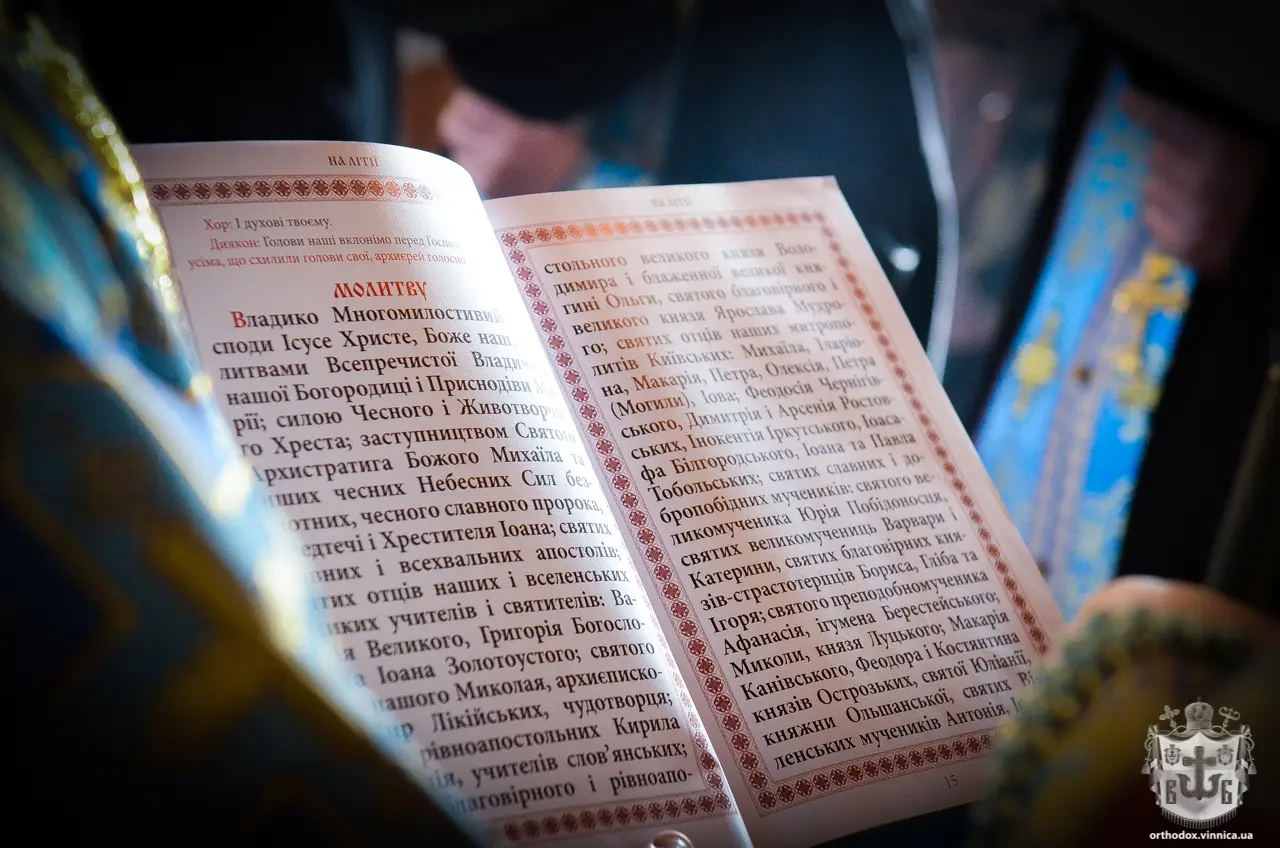 НА ЛІТІЇ
Хор: І духові твоєму.
Диякон: Голови наші вклонімо перед
усіма, що схилили голови свої, архиєрей
МОЛИТВУ
Владико Многомилостивий
споди Ісусе Христе, Боже наш,
литвами Всепречистої
нашої Богородиці і Приснодіви
рії; силою Чесного і
го Хреста; заступництвом
Архистратига Божого Михаїла та
інших чесних Небесних Сил без-
чесного славного пророка,
і Хрестителя Іоана; святих
і всехвальних апостолів;
отців наших і вселенських
учителів і святителів: Ва-
Великого, Григорія Богосло-
Іоана Золотоустого; святого
нашого Миколая, архиєписко-
Лікійських, чудотворця;
рівноапостольних Кирила
учителів слов'янських;
благовірного і рівноапо-
НА ЛІТІЇ
стольного великого князя Воло-
димира і блаженної великої кня-
гині Ольги, святого благовірного і
великого князя Ярослава Мудро-
го; святих отців наших митропо-
литів Київських: Михаїла, Іларіо-
на, Макарія, Петра, Олексія, Петра
(Могили), Іова; Феодосія Чернігів-
ського, Димитрія і Арсенія Ростов-
ських, Інокентія Іркутського, Іоаса-
фа Білгородського, Іоана та Павла
Тобольських; святих славних і до-
бропобідних мучеників: святого ве-
ликомученика Юрія Побідоносця,
святих великомучениць Варвари і
Катерини, святих благовірних кня-
зів-страстотерпців Бориса, Гліба та
Ігоря; святого преподобномученика
Афанасія, ігумена Берестейського;
Миколи, князя Луцького; Макарія
Канівського, Феодора і Костянтина
князів Острозьких, святої Юліанії,
княжни Ольшанської, святих
ленських мучеників Антонія,
15
В Б
orthodox.vinnica.ua